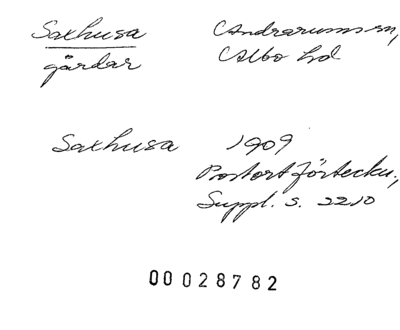 Saxhusa Andrarums sn,
gårdar Albo hd
Saxhusa 1909
Postortförteckn.,
Suppl. s. 2210
00028782